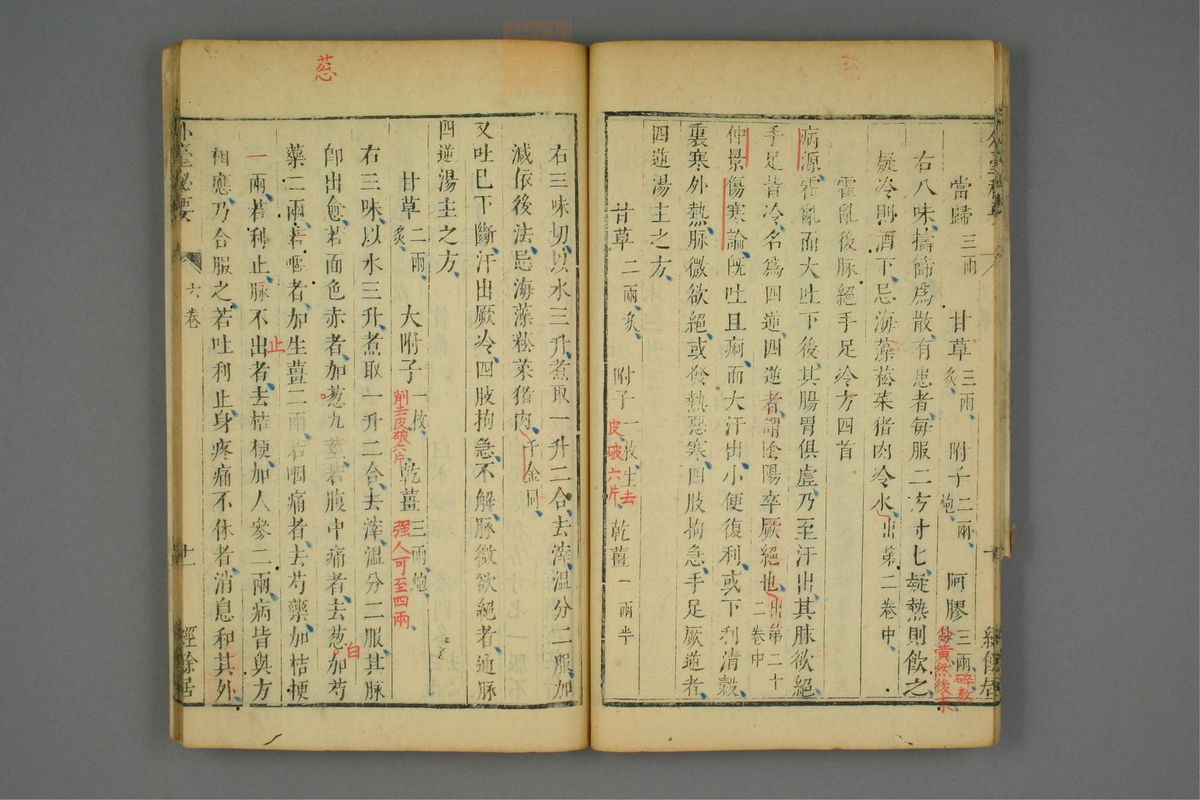 當歸三兩 甘草炙三兩 附子炮二兩 阿膠三兩
碎熬
炒黄然後末
右八味擣篩爲散有患者每服二方寸七㨶熱則飲之
㨶冷則酒下忌海藻菘菜猪肉冷水出第二卷中
霍亂後脉絕手足冷方四首
病源霍亂而大吐下後其腸胃俱虛乃至汗出其脉欲絕
手足皆冷名爲四逆四逆者謂陰陽卒厥絕也出第二十二卷中
仲景傷寒論既吐且痢而大汗出小便復利或下利清穀
裏寒外熱脉微欲絕或發熱惡寒四肢拘急手足厥逆者
四逆湯主之方
甘草二兩炙 附子一枚生 乾薑一兩半
去皮破六片
右三味切以水三升煮取一升二合去滓溫分二服加
減依後法忌海藻菘菜猪肉千金同
又吐已下斷汗出厥冷四肢拘急不解脉微欲絕者通脉
四逆湯主之方
甘草二兩炙 大附子一枚 乾薑三兩炮
削去皮破六片
强人可至四兩
右三味以水三升煮取一升二合去滓溫分二服其脉
即出愈若面色赤者加葱九莖若腹中痛者去葱加芍
白
藥二兩若嘔者加生薑二兩若咽痛者去芍藥加桔梗
一兩若利止脉不出者去桔梗加人參二兩病皆與方
止
相應乃合服之若吐利止身疼痛不休者消息和其外
外臺祕要
六卷
十一
經餘居
葱